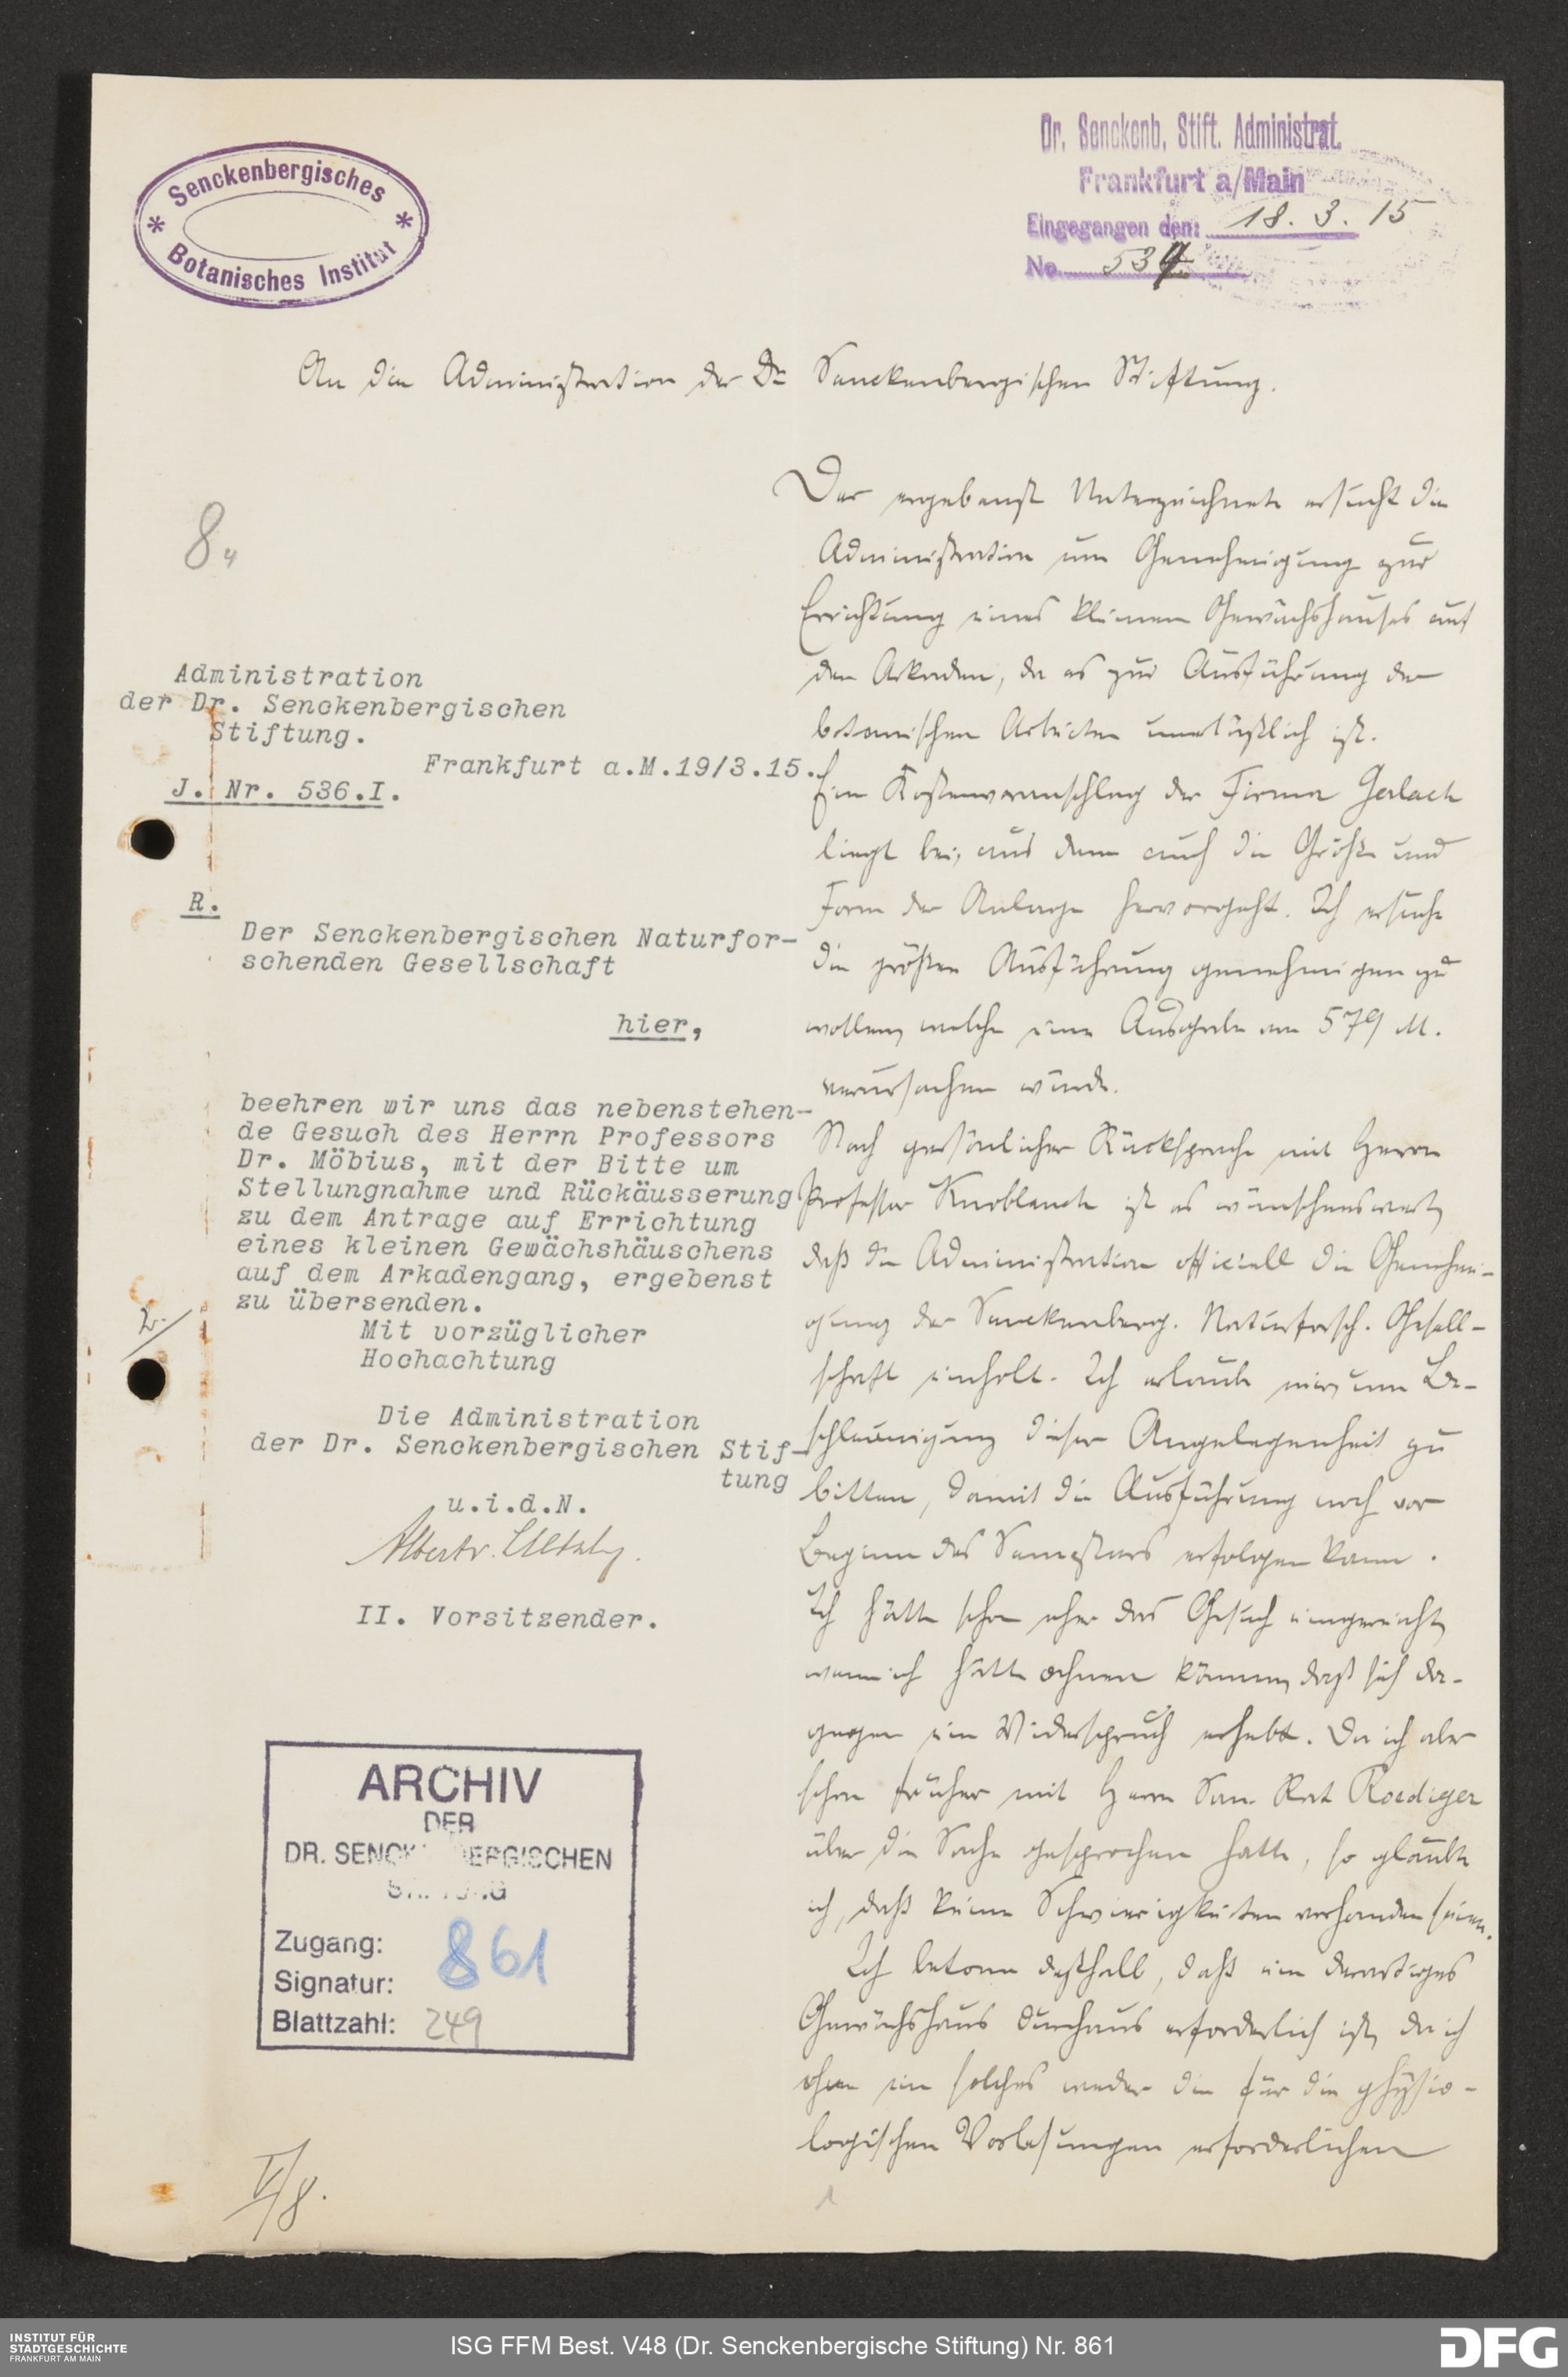 Senckenbergisches
Botanisches Institut
Dr. Senckenb. Stift. Administrat.
Frankfurt a/Main
Eingegangen den: 18. 3. 15
No.
An die Administration der Dr Senckenbergischen Stiftung.
8.
Administration
der Dr. Senckenbergischen
Stiftung.
Frankfurt a.M.19/3.15.
J. Nr. 536.I.
R.
Der Senckenbergischen Naturfor-
schenden Gesellschaft
hier,
beehren wir uns das nebenstehen-
de Gesuch des Herrn Professors
Dr. Möbius, mit der Bitte um
Stellungnahme und Rückäusserung
zu dem Antrage auf Errichtung
eines kleinen Gewächshäuschens
auf dem Arkadengang, ergebenst
zu übersenden.
Mit vorzüglicher
Hochachtung
Die Administration
der Dr. Senckenbergischen Stif-
tung
u.i.d.N.
Albert v.
II. Vorsitzender.
Der ergebenst Unterzeichnete ersucht die
Administration um Genehmigung zur
Errichtung eines kleinen Gewächshauses auf
den Arkaden, da es zur Ausführung der
botanischen Arbeiten unerläßlich ist.
Ein Kostenvoranschlag der Firma Gerlach
liegt bei, aus dem auch die Größe und
Form der Anlage hervorgeht. Ich ersuche
die größere Ausführung genehmigen zu
wollen, welche eine Ausgabe von 579 M.
verursachen würde.
Nach persönlicher Rücksprache mit Herrn
Professor Knoblauch ist es wünschenswert,
daß die Administration officiell die Genehmi-
gung der Senckenberg. Naturforsch. Gesell-
schaft einholt. Ich erlaube mir, um Be-
schleunigung dieser Angelegenheit zu
bitten, damit die Ausführung noch vor
Beginn des Semesters erfolgen kann.
Ich hätte schon eher das Gesuch eingereicht,
wenn ich hätte ahnen können, daß sich da-
gegen ein Widerspruch erhebt. Da ich aber
schon früher mit Herrn San. Rat Roediger
über die Sache gesprochen hatte, so glaubte
ich, daß keine Schwierigkeiten vorhanden seien.
Ich betone deßhalb, daß ein derartiges
Gewächshaus durchaus erforderlich ist, da ich
ohne ein solches weder die für die physio-
logischen Vorlesungen erforderlichen
ARCHIV
DER
DR. SENCKENBERGISCHEN
STIFTUNG
Zugang:
Signatur: 861
Blattzahl: 249
V/8.
1
INSTITUT FÜR
STADTGESCHICHTE
FRANKFURT AM MAIN
ISG FFM Best. V48 (Dr. Senckenbergische Stiftung) Nr. 861
DFG